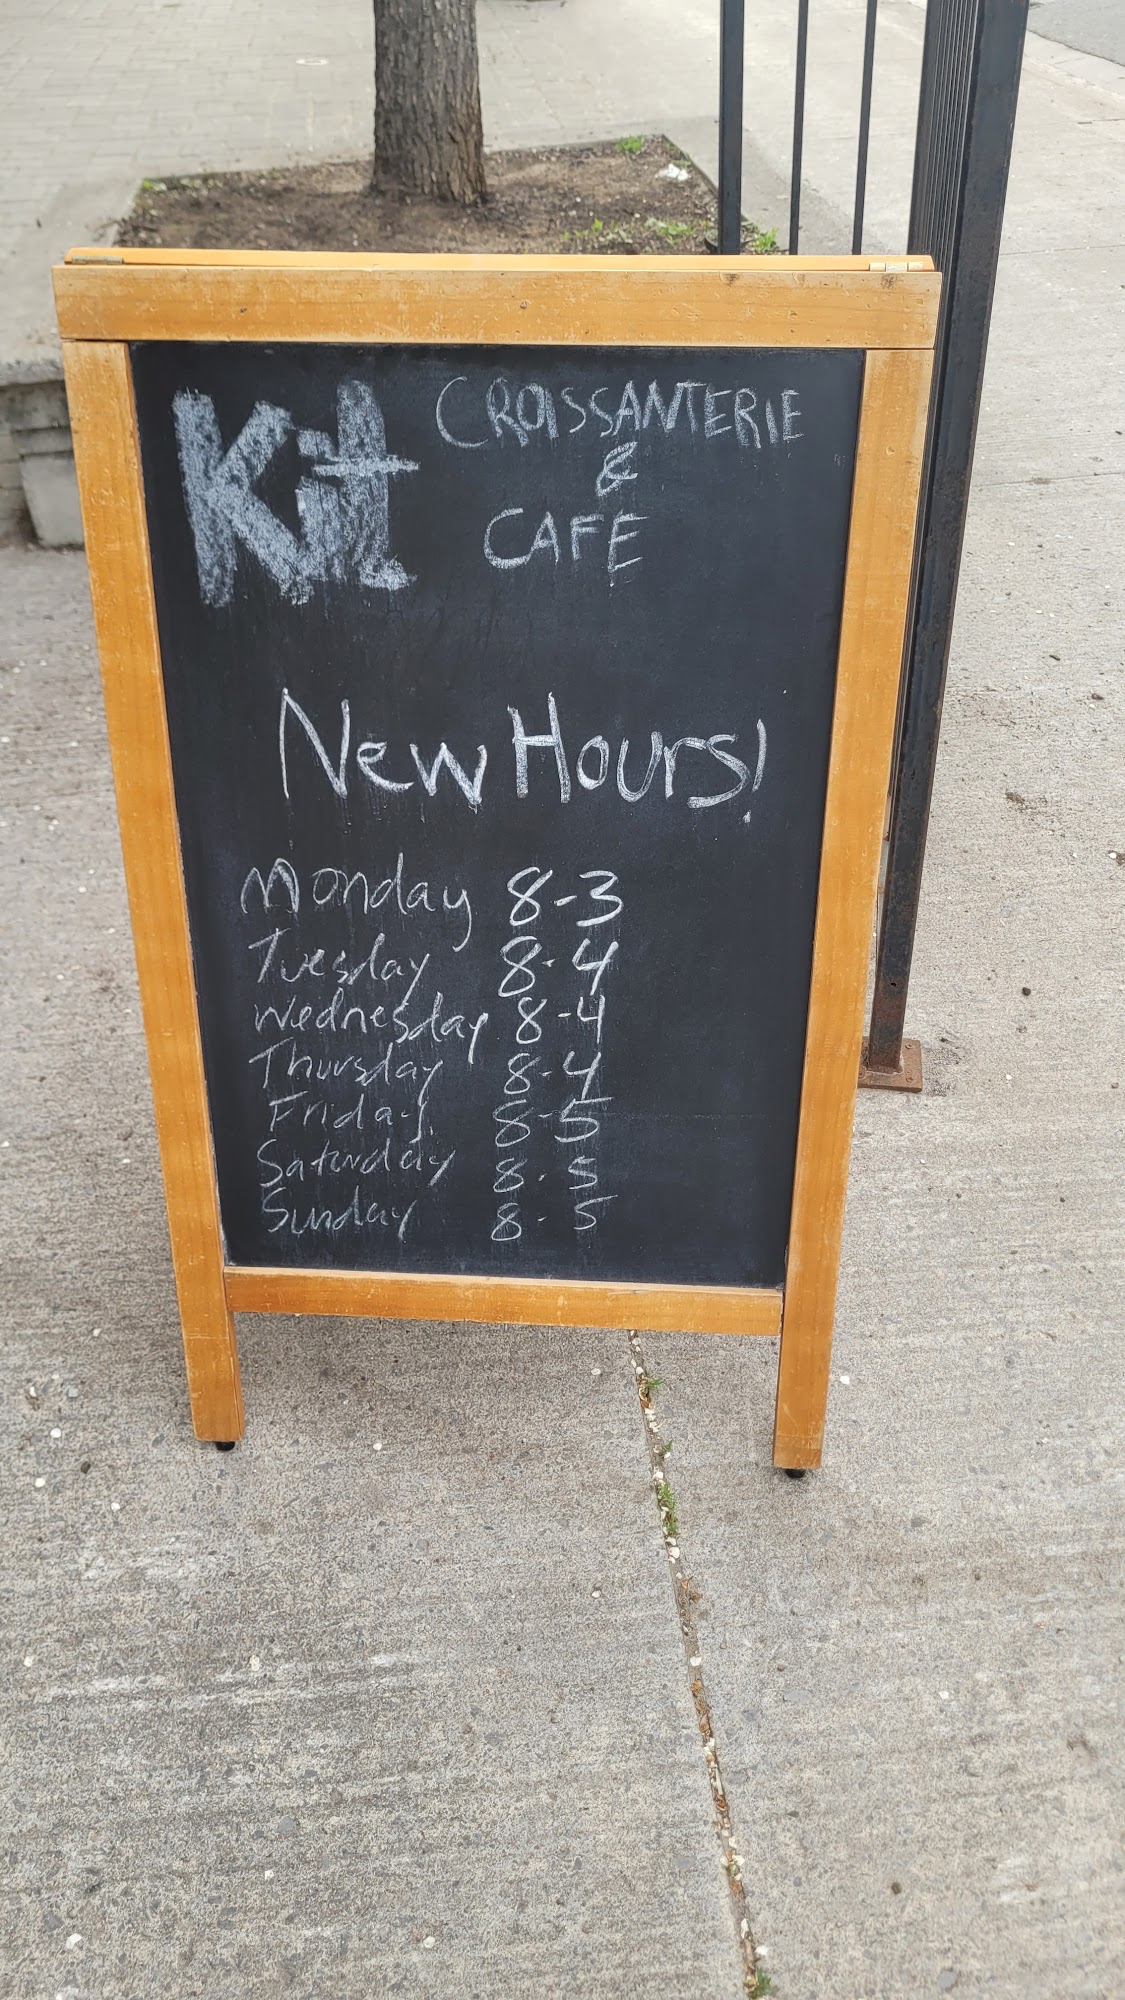 Kit CROISSANTERIE
&
CAFE
New Hours!
Monday 8-3
Tuesday 8-4
Wednesday 8-4
Thursday 8-4
Friday 8-5
Saturday 8-5
Sunday 8-5